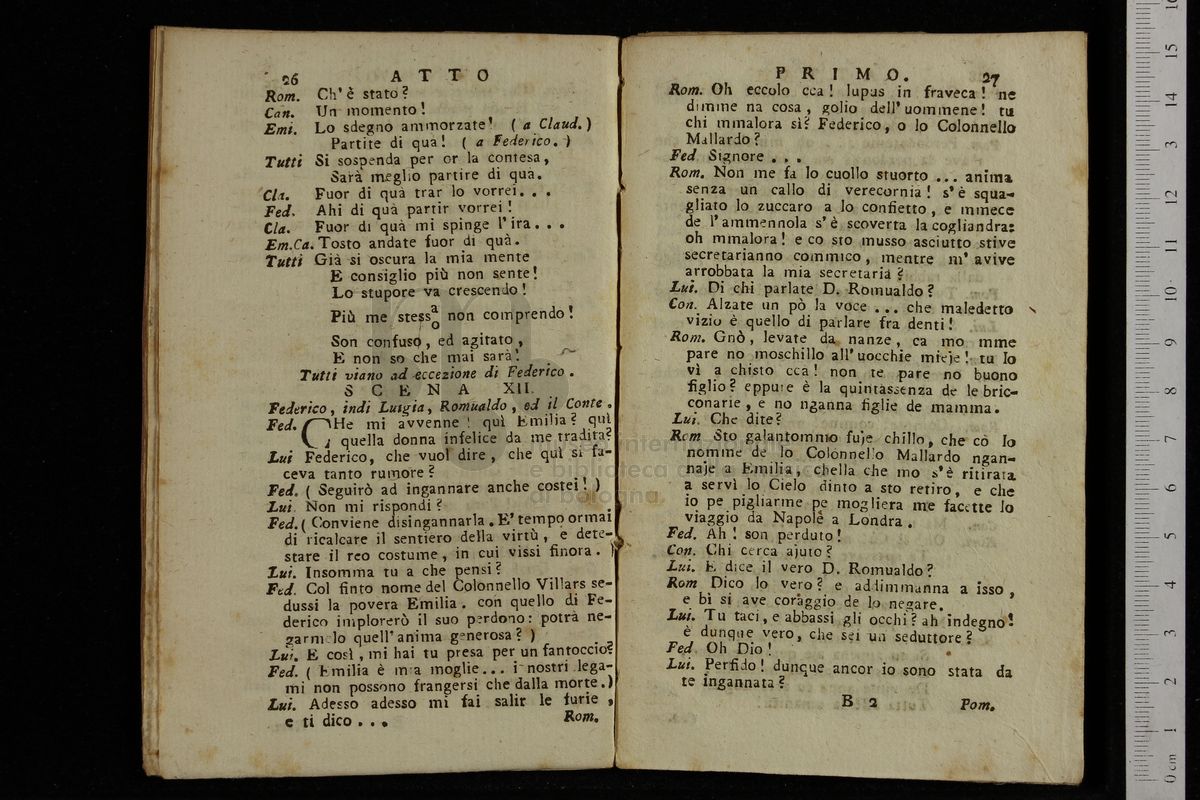 26 ATTO
Rom. Ch' è stato?
Can. Un momento!
Emi. Lo sdegno ammorzate! (a Claud.)
Partite di quà! (a Federico.)
Tutti Si sospenda per or la contesa,
Sarà meglio partire di quà.
Cla. Fuor di quà trar lo vorrei...
Fed. Ahi di quà partir vorrei!
Cla. Fuor di quà mi spinge l'ira...
Em.Ca. Tosto andate fuor di quà.
Tutti Già si oscura la mia mente
E consiglio più non sente!
Lo stupore va crescendo!
Più me stess a/o non comprendo!
Son confuso, ed agitato,
E non so che mai sarà!
Tutti viano ad eccezione di Federico.
SCENA XII.
Federico, indi Luigia, Romualdo, ed il Conte.
Fed. CHe mi avvenne! quì Emilia? quì
quella donna infelice da me tradita?
Lui Federico, che vuol dire, che quì si fa-
ceva tanto rumore?
Fed. (Seguirò ad ingannare anche costei!)
Lui. Non mi rispondi?
Fed. (Conviene disingannarla. E' tempo ormai
di ricalcare il sentiero della virtù, e dete-
stare il reo costume, in cui vissi finora.)
Lui. Insomma tu a che pensi?
Fed. Col finto nome del Colonnello Villars se-
dussi la povera Emilia. con quello di Fe-
derico implorerò il suo perdono: potrà ne-
garmelo quell'anima generosa?)
Lui. E così, mi hai tu presa per un fantoccio?
Fed. (Emilia è mia moglie... i nostri lega-
mi non possono frangersi che dalla morte.)
Lui. Adesso adesso mi fai salir le furie,
e ti dico... Rom.
PRIMO. 27
Rom. Oh eccolo cca! lupus in fraveca! ne
dimme na cosa, golio dell'uommene! tu
chi mmalora sì? Federico, o lo Colonnello
Mallardo?
Fed. Signore...
Rom. Non me fa lo cuollo stuorto... anima
senza un callo di verecornia! s'è squa-
gliato lo zuccaro a lo confietto, e mmece
de l'ammennola s'è scoverta la cogliandra:
oh mmalora! e co sto musso asciutto stive
secretarianno commico, mentre m'avive
arrobbata la mia secretaria?
Lui. Di chi parlate D. Romualdo?
Con. Alzate un pò la voce... che maledetto
vizio è quello di parlare fra denti!
Rom. Gnò, levate da nanze, ca mo mme
pare no moschillo all'uocchie mieje! tu lo
vì a chisto cca! non te pare no buono
figlio? eppure è la quintassenza de le bric-
conarie, e no nganna figlie de mamma.
Lui. Che dite?
Rom Sto galantommo fuje chillo, che cò lo
nomme de lo Colonnello Mallardo ngan-
naje a Emilia, chella che mo s'è ritirata
a servì lo Cielo dinto a sto retiro, e che
io pe pigliarme pe mogliera me facette lo
viaggio da Napole a Londra.
Fed. Ah! son perduto!
Con. Chi cerca ajuto?
Lui. E dice il vero D. Romualdo?
Rom Dico lo vero? e addimmanna a isso,
e bì si ave coraggio de lo negare.
Lui. Tu taci, e abbassi gli occhi? ah indegno!
è dunque vero, che sei un seduttore?
Fed. Oh Dio!
Lui. Perfido! dunque ancor io sono stata da
te ingannata?
B 2 Pom.
museo internazionale
e biblioteca della musica
di bologna